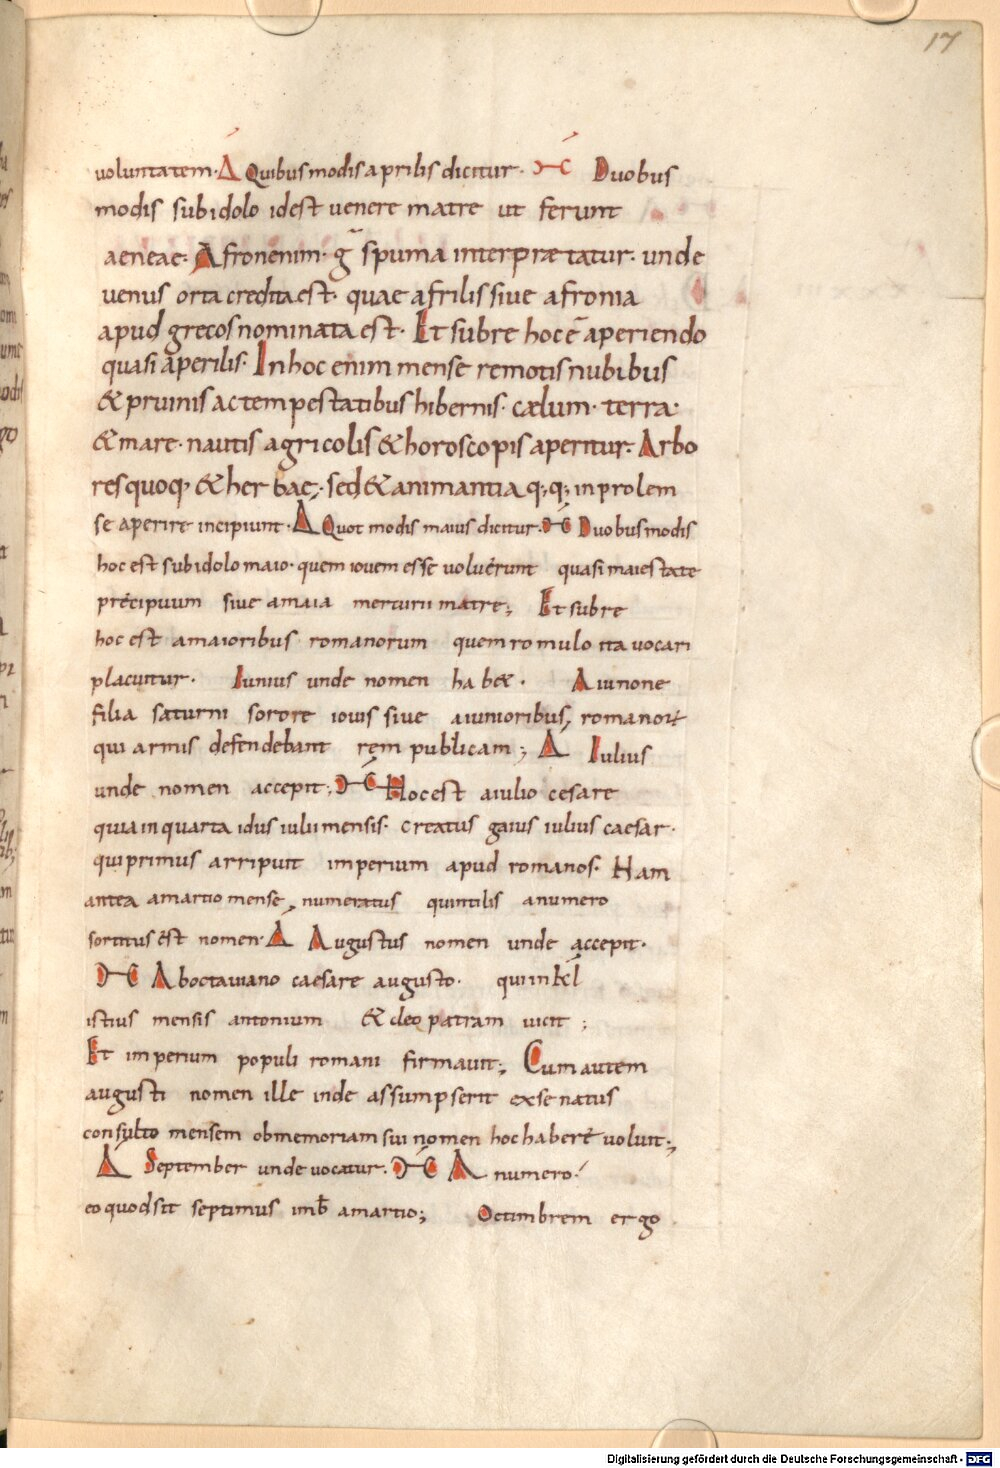 17
voluntatem. Δ Quibus modis aprilis dicitur. M Duobus
modis sub idolo idest uenere matre ut ferunt
aeneae. Afronenim. g̅ spuma interpraetatur. unde
uenus orta credita est. quae afrilis siue afronia
apud grecos nominata est. Et sub re hoc ē aperiendo
quasi aperilis. In hoc enim mense remotis nubibus
& pruinis ac tempestatibus hibernis. cælum. terra.
& mare. nautis agricolis & horoscopis aperitur. Arbo
res quoq; & herbae; sed & animantia q;q; in prolem
se aperire incipiunt. Δ Quot modis maius dicitur. M Duobus modis
hoc est sub idolo maio. quem iouem esse voluerunt quasi maiestate
precipuum siue a maia mercurii matre; Et sub re
hoc est a maioribus romanorum quem romulo ita uocari
placuitur. Iunius unde nomen hab&. A iunone
filia saturni sorore iouis siue a iunioribus, romanoꝝ
qui armis defendebant rem publicam; Δ Iulius
unde nomen accepit; M Hoc est a iulio cesare
quia in quarta idus iulii mensis. creatus gaius iulius caesar.
qui primus arripuit imperium apud romanos. Nam
antea a martio mense, numeratus quintilis a numero
sortitus est nomen. Δ Augustus nomen unde accepit.
M Ab octauiano caesare augusto. qui in kl
istius mensis antonium & cleopatram uicit;
Et imperium populi romani firmauit; Cum autem
augusti nomen ille inde assumpserit ex senatus
consulto mensem ob memoriam sui nomen hoc habere voluit;
Δ September unde uocatur. M A numero.
eo quod sit septimus imb̅ a martio; Octimbrem ergo
Digitalisierung gefördert durch die Deutsche Forschungsgemeinschaft - DFG